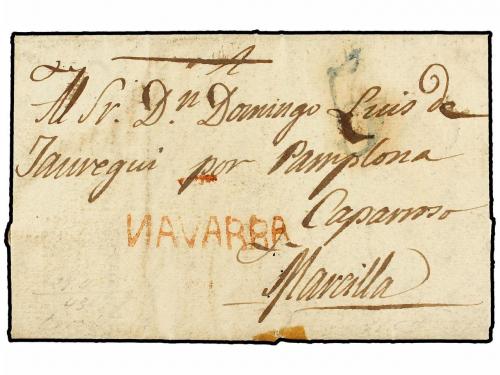 Al Sr. Dn Domingo Luis de
Jauregui por Pamplona
Caparroso
NAVARRA
Marcilla